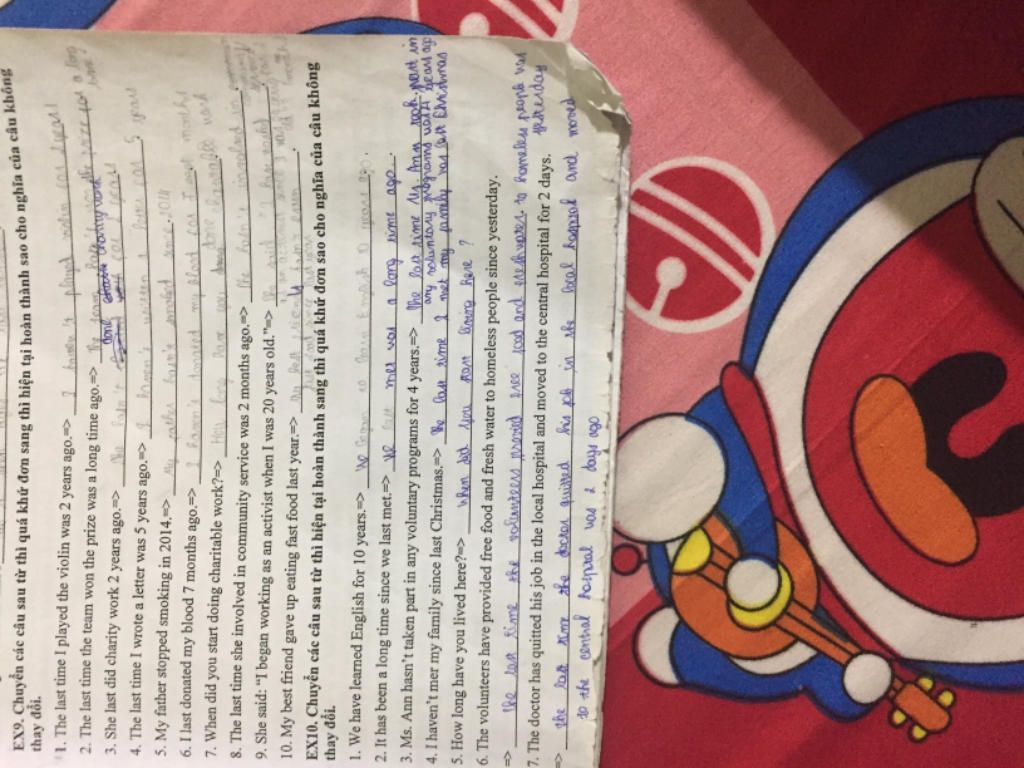 EX9. Chuyển các câu sau từ thì quá khứ đơn sang thì hiện tại hoàn thành sao cho nghĩa của câu không
thay đổi.
1. The last time I played the violin was 2 years ago.=> I haven't played violin
2. The last time the team won the prize was a long time ago.=> The team
done charity work
3. She last did charity work 2 years ago.=> She
4. The last time I wrote a letter was 5 years ago.=> I haven't written a letter for 5 years
5. My father stopped smoking in 2014.=> My father hasn't smoked since 2014
6. I last donated my blood 7 months ago.=> I haven't donated my blood for 7 months
7. When did you start doing charitable work?=> How long have you done charitable work
8. The last time she involved in community service was 2 months ago.=> She hasn't involved in
9. She said: "I began working as an activist when I was 20 years old."=> She said
10. My best friend gave up eating fast food last year.=> My best friend
EX10. Chuyển các câu sau từ thì hiện tại hoàn thành sang thì quá khứ đơn sao cho nghĩa của câu không
thay đổi.
1. We have learned English for 10 years.=> We began to learn English 10 years ago.
2. It has been a long time since we last met.=> We last met was a long time ago.
3. Ms. Ann hasn't taken part in any voluntary programs for 4 years.=> The last time Ms Ann took part in
any voluntary programs was 4 years ago
4. I haven't mer my family since last Christmas.=> The last time I met my family was last Christmas
5. How long have you lived here?=> When did you start living here ?
6. The volunteers have provided free food and fresh water to homeless people since yesterday.
=> The last time the volunteers provied free food and freshwater to homeless people was
yesterday
7. The doctor has quitted his job in the local hospital and moved to the central hospital for 2 days.
=> The last time the doctor quitted his job in the local hospital and moved
to the central hospital was 2 days ago